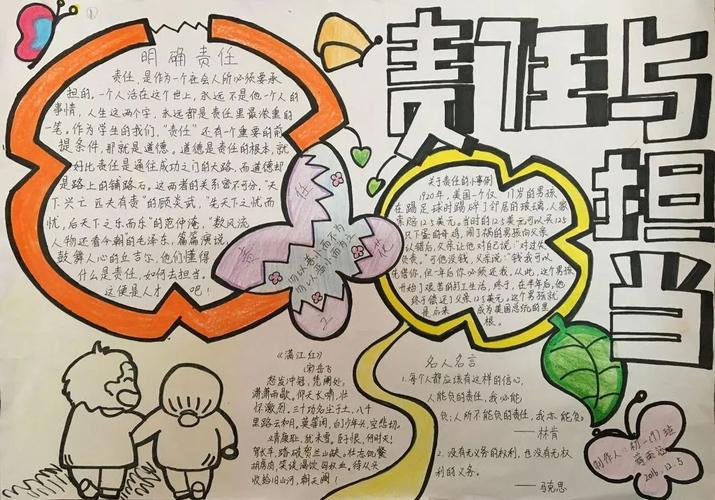 ①
责任与
担当
明确责任
责任，是作为一个社会人所必须要承
担的。一个人活在这个世上，永远不是他一个人的
事情，人生这两个字，永远都是责任里最浓重的
一笔。作为学生的我们，“责任”还有一个重要的前
提条件，那就是道德。道德是责任的根本，就
好比责任是通往成功之门的大路，而道德却
是路上的铺路石。这两者的关系密不可分，“天
下兴亡 匹夫有责”的顾炎武，“先天下之忧而
忧，后天下之乐而乐”的范仲淹，“数风流
人物还看今朝的毛泽东，篇篇演说，
鼓舞人心的丘吉尔，他们懂得
什么是责任，如何去担当。
这便是人才 吧！
勿以善小而不为
勿以恶小而为之
关于责任的小事例
1920年，美国一个仅 11岁的男孩
在踢足球时踢碎了邻居的玻璃，人家
索赔12.5美元。当时的12.5美元可以买125
只下蛋的母鸡，闯了祸的男孩向父亲
认错后，父亲让他对自己说“对过失
负责。”可他没钱，父亲说：“钱我可以
先借你，但一年后你必须还我，从此，这个男孩
开始了艰苦的打工生活，终于，在半年后，他
终于偿还了父亲12.5美元。这个男孩就
是后来 成为美国总统的里
根。
《满江红》
南岳飞
怒发冲冠，凭阑处，
潇潇雨歇。仰天长啸，壮
怀激烈。三十功名尘土，八千
里路云和月，莫等闲，白了少年头，空悲切。
靖康耻，犹未雪，臣子恨，何时灭！
驾长车，踏破贺兰山缺。壮志饥餐
胡虏肉，笑谈渴饮匈奴血。待从头
收拾旧山河，朝天阙！
名人名言
1. 每个人都应该有这样的信心，
人能负的责任，我必能
负；人所不能负的责任，我亦能负。
——林肯
2. 没有无义务的权利，也没有无权
利的义务。
——马克思
制作人：初一(1)班
2016.12.5